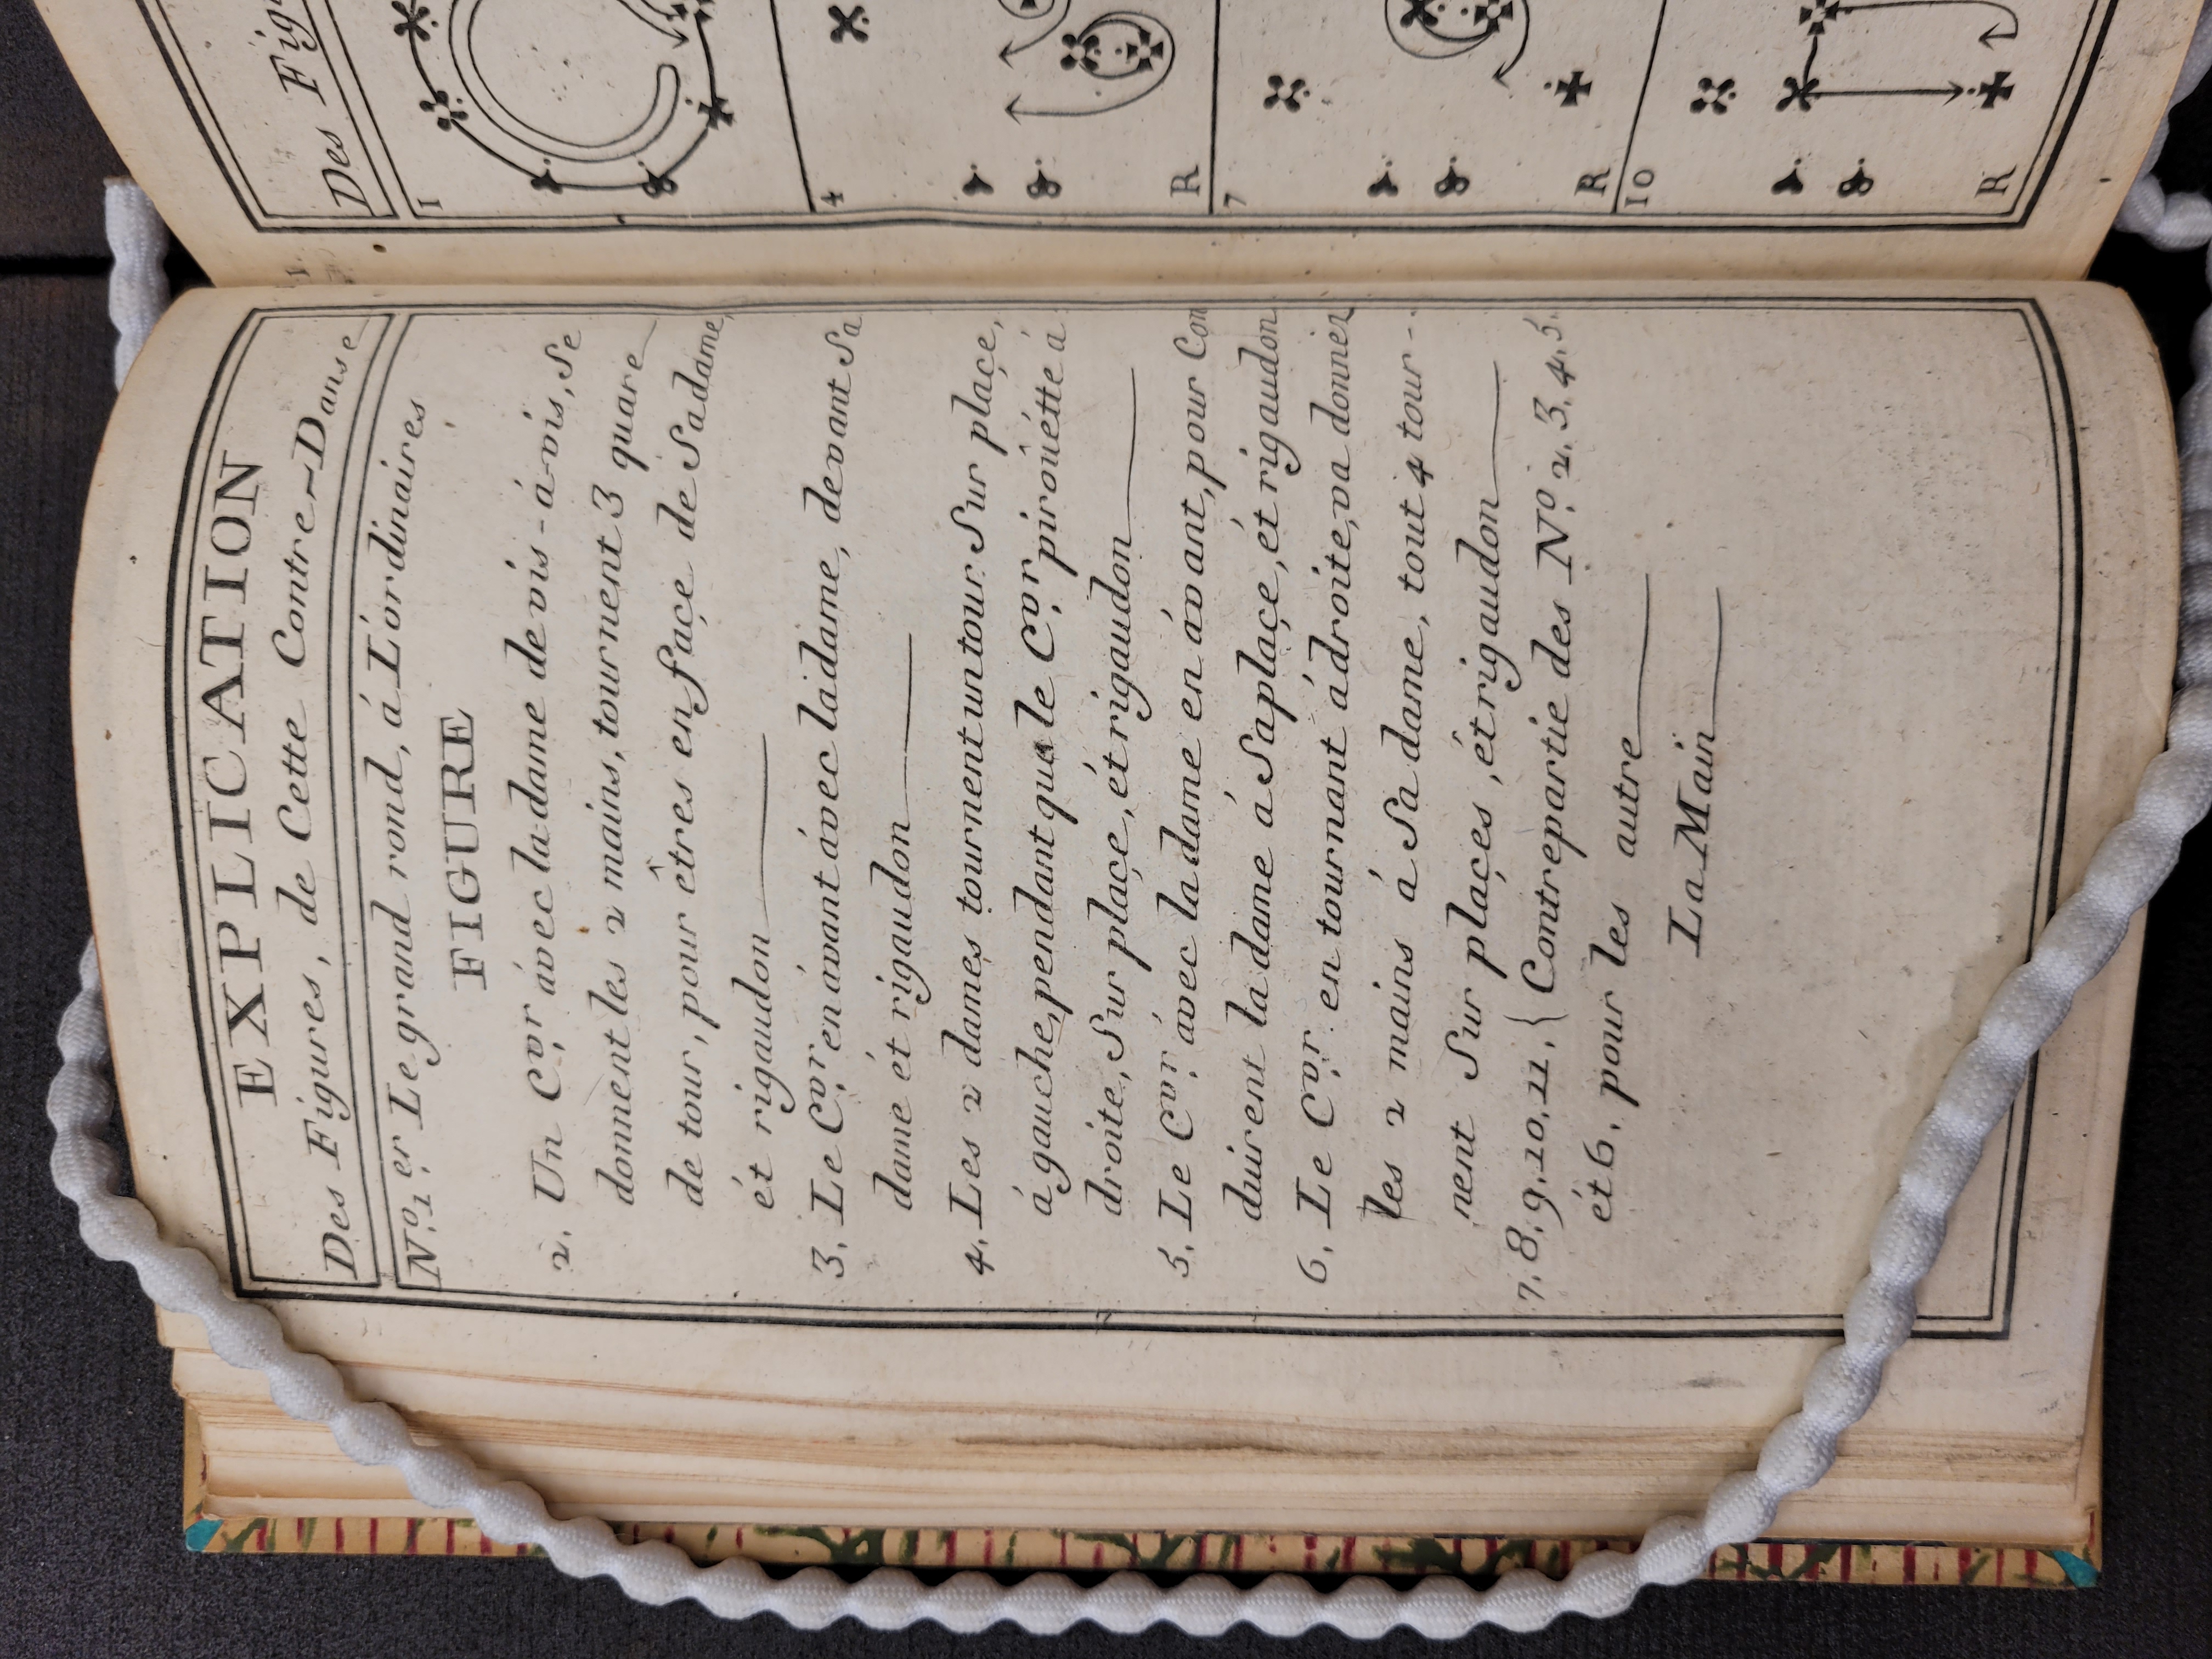 EXPLICATION
Des Figures, de Cette Contre-Danse
N.º 1.er Le grand rond, á L'ordinaires
FIGURE
2. Un C.vr ávec la dame de vis-á-vis, Se
donnent les 2 mains, tournent 3 quare
de tour, pour êtres en façe de Sa dame,
ét rigaudon
3. Le C.vr en ávant ávec la dame, devant Sa
dame ét rigaudon
4. Les 2 dames tournent un tour Sur plaçe,
á gauche, pendant que le C.vr pirouétte á
droite, Sur plaçe, ét rigaudon
5. Le C.vr ávec la dame en ávant, pour Con
duirent la dame á Sa plaçe, ét rigaudon
6. Le C.vr en tournant á droite, va donner
les 2 mains á Sa dame, tout 4 tour-
nent Sur plaçes, ét rigaudon
7.8.9.10.11.{ Contrepartie des N.º 2.3.4.5.
ét 6. pour les autre
La Main
Des Fig
1
4
R
7
R
10
R